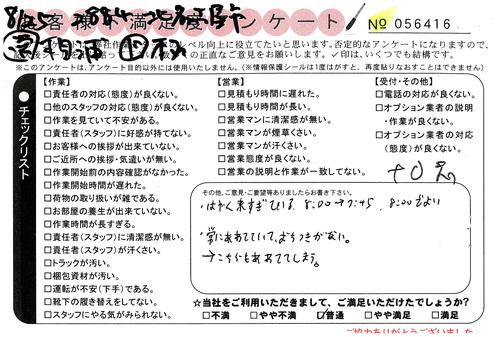 お客様満足度アンケート
№ 056416
このアンケートは、弊社作業レベル向上に役立てたいと思います。否定的なアンケートになりますので、
の正直なご意見をお願いします。✓印は、いくつでも結構です。
このアンケートは、アンケート目的以外には使用いたしません。(※情報保護シールは1度はがすと、再度貼りなおすことはできません)
チェックリスト
【作業】
□責任者の対応(態度)が良くない。
□他のスタッフの対応(態度)が良くない。
□作業を見ていて不安がある。
□責任者(スタッフ)に好感が持てない。
□お客様への挨拶が出来ていない。
□ご近所への挨拶・気遣いが無い。
□作業開始前の内容確認がなかった。
□作業開始時間が遅れた。
□荷物の取り扱いが雑である。
□お部屋の養生が出来ていない。
□作業時間が長すぎる。
□責任者(スタッフ)に清潔感が無い。
□責任者(スタッフ)が汗くさい。
□トラックが汚い。
□梱包資材が汚い。
□運転が不安(下手)である。
□靴下の履き替えをしてない。
□スタッフにやる気がみられない。
【営業】
□見積もり時間に遅れた。
□見積もり時間が長い。
□営業マンに清潔感が無い。
□営業マンが煙草くさい。
□営業マンが汗くさい。
□営業態度が良くない。
□営業の説明と作業が一致してない。
【受付・その他】
□電話の対応が良くない。
□オプション業者の説明
・作業が良くない。
□オプション業者の対応
(態度)が良くない。
その他、ご意見・ご要望等ありましたらお書き下さい。
・はやく来すぎている 8:00→7:45 8:00でよい
・常にあわてていて、おちつきがない。
→こちらもあわててします。
☆当社をご利用いただきまして、ご満足いただけたでしょうか?
□不満 □やや不満 ☑普通 □やや満足 □満足
ご協力ありがとうございました